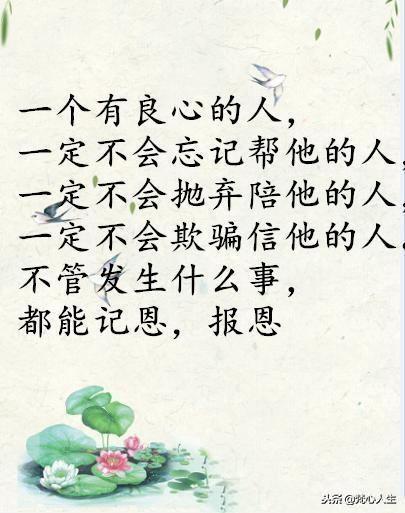 一个有良心的人，
一定不会忘记帮他的人，
一定不会抛弃陪他的人，
一定不会欺骗信他的人。
不管发生什么事，
都能记恩，报恩
头条@梵心人生